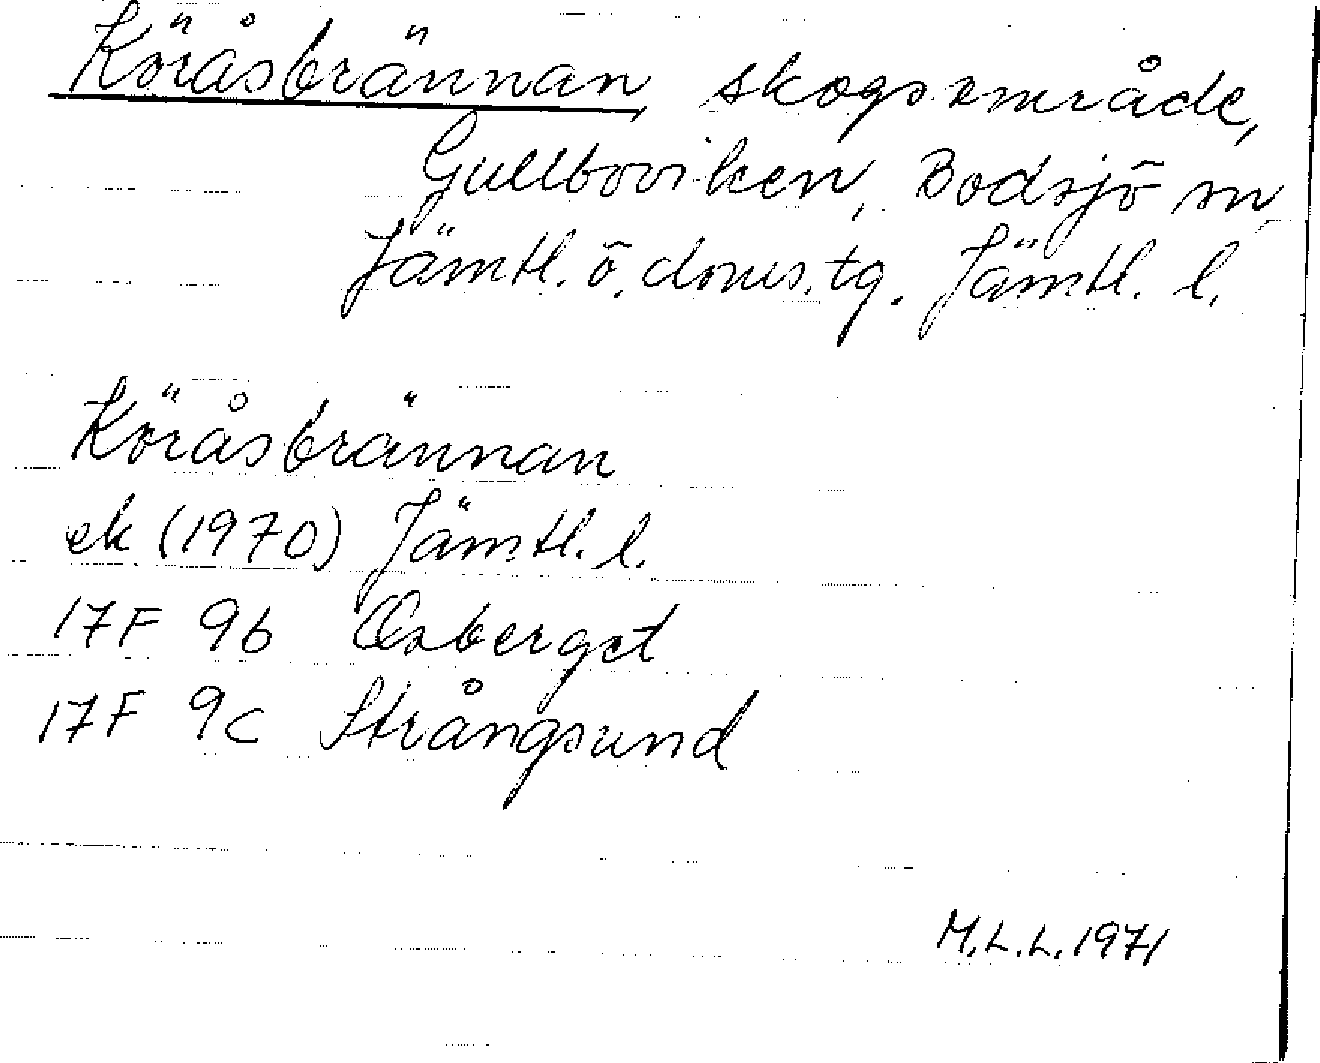 Köråsbrännan, skogsområde,
Gullboviken, Bodsjö sn,
Jämtl. ö. doms. tg. Jämtl. l.
Köråsbrännan
ek (1970) Jämtl. l.
17F 9b Oxberget
17F 9c Strångsund
M.L.L. 1971